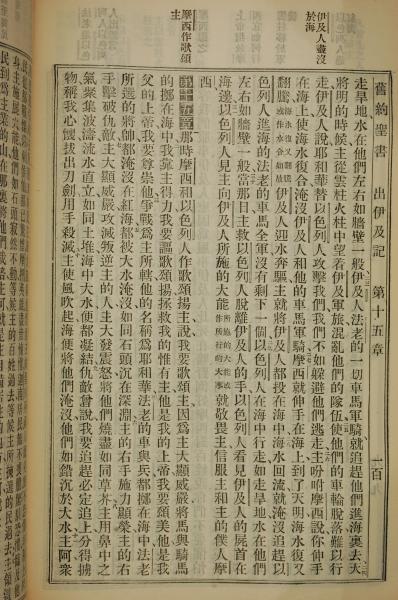 舊約聖書 出伊及記 第十五章 一百九
伊及人盡沒
於海
走旱地水在他們左右如牆壁一般伊及人法老的一切車馬軍騎就追趕他們進海裏去天
將明的時候主從雲柱火柱中望着伊及軍旅混亂他們的隊伍使他們的車輪脫落難以行
走伊及人說耶和華替以色列人攻擊我們我們不如躲避他們逃走主吩咐摩西說你伸手
在海上使海水復合淹沒伊及人和他的車馬軍騎摩西就伸手在海上到了天明海水復又
翻騰海水復又翻騰或作伊及人迎水奔驅主就將伊及人都投在海中海水回流就淹沒追趕以
色列人進海的法老的車馬全軍沒有剩下一個以色列人在海中行走如走旱地水在他們
左右如牆壁一般當那日主救以色列人脫離伊及人的手以色列人看見伊及人的屍首在
海邊以色列人見主向伊及人所施的大能所施的大能或作所行的大事就敬畏主信服主和主的僕人摩
西
摩西作歌頌
主
第十五章那時摩西和以色列人作歌頌揚主說我要歌頌主因爲主大顯威嚴將馬與騎馬
的擲在海中我靠主得力我要謳歌頌揚拯救我的惟有主他是我的上帝我要頌美他是我
父的上帝我要尊崇他爭戰爲主所轄他的名稱爲耶和華法老的車與兵都擲在海中法老
所選的將帥都淹沒在紅海都被大水淹沒如同石頭沉在深淵主的右手施力顯榮主的右
手擊破仇敵主大顯威嚴攻滅叛逆主的人主大發震怒將他們燒盡如同草芥主用鼻中之
氣聚集波濤流水直立如同土堆海中大水便都凝結仇敵曾說我要追趕必定追上分得擄
物稱我心懷拔出刀劍用手殺滅主使風吹起海便將他們淹沒他們如鉛沉於大水主阿衆